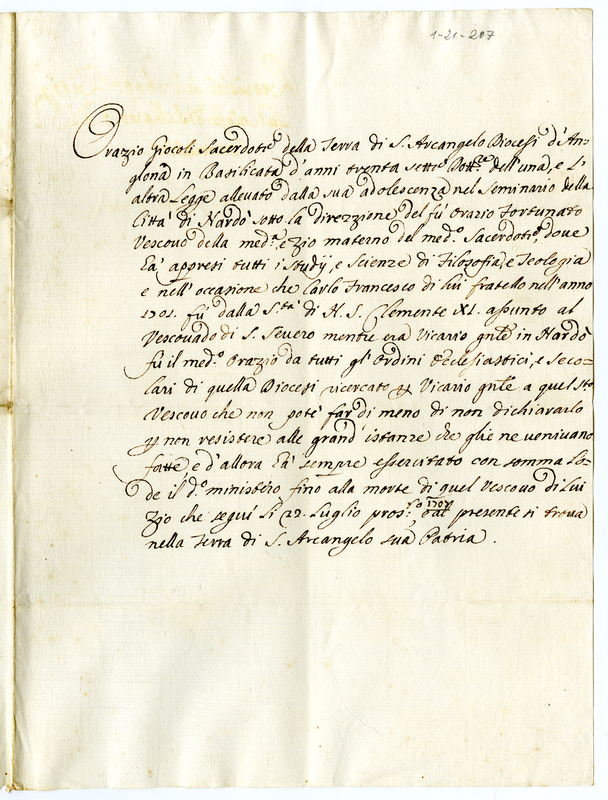 1-21-207
Orazio Giocoli Sacerdote della Terra di S. Arcangelo Diocesi d'An=
glona in Basilicata d'anni trenta sette Dott.re dell'una, e l'
altra Legge allevato dalla sua adolescenza nel Seminario della
Città di Nardò sotto la direzzione del fù Orazio Fortunato
Vescovo della med.a, e zio materno del med.o Sacerdote, dove
hà appresi tutti i studij, e scienze di Filosofia, e Teologia
e nell'occasione che Carlo Francesco di lui fratello nell'anno
1701. fù dalla S.tà di N. S. Clemente XI. assunto al
Vescovado di S. Severo mentre era Vicario gnle in Nardò
fù il med.o Orazio da tutti gl'Ordini Ecclesiastici, e Seco=
lari di quella Diocesi ricercato p Vicario gnle a quel
Vescovo che non potè far di meno di non dichiararlo
p non resistere alle grand'istanze che glie ne venivano
fatte e d'allora hà sempre essercitato con somma lo=
de il d.o ministero fino alla morte di quel Vescovo di lui
zio che seguì li 27. Luglio pros.o 1707 al presente si trova
nella Terra di S. Arcangelo sua Patria.